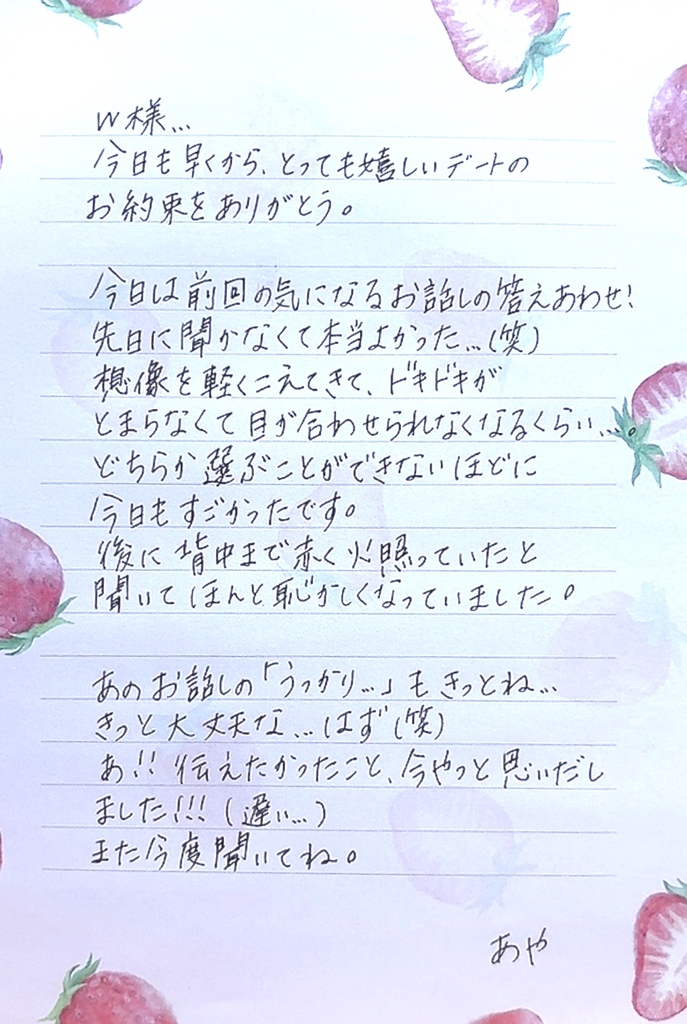 W様…
今日も早くから、とっても嬉しいデートの
お約束をありがとう。
今日は前回の気になるお話しの答えあわせ!
先日に聞かなくて本当よかった…(笑)
想像を軽くこえてきて、ドキドキが
とまらなくて目が合わせられなくなるくらい…。
どちらか選ぶことができないほどに
今日もすごかったです。
後に背中まで赤く火照っていたと
聞いてほんと恥かしくなっていました。
あのお話しの「うっかり…」もきっとね…
きっと大丈夫な…はず(笑)
あ!!伝えたかったこと、今やっと思いだし
ました!!!(遅い…)
また今度聞いてね。
あや